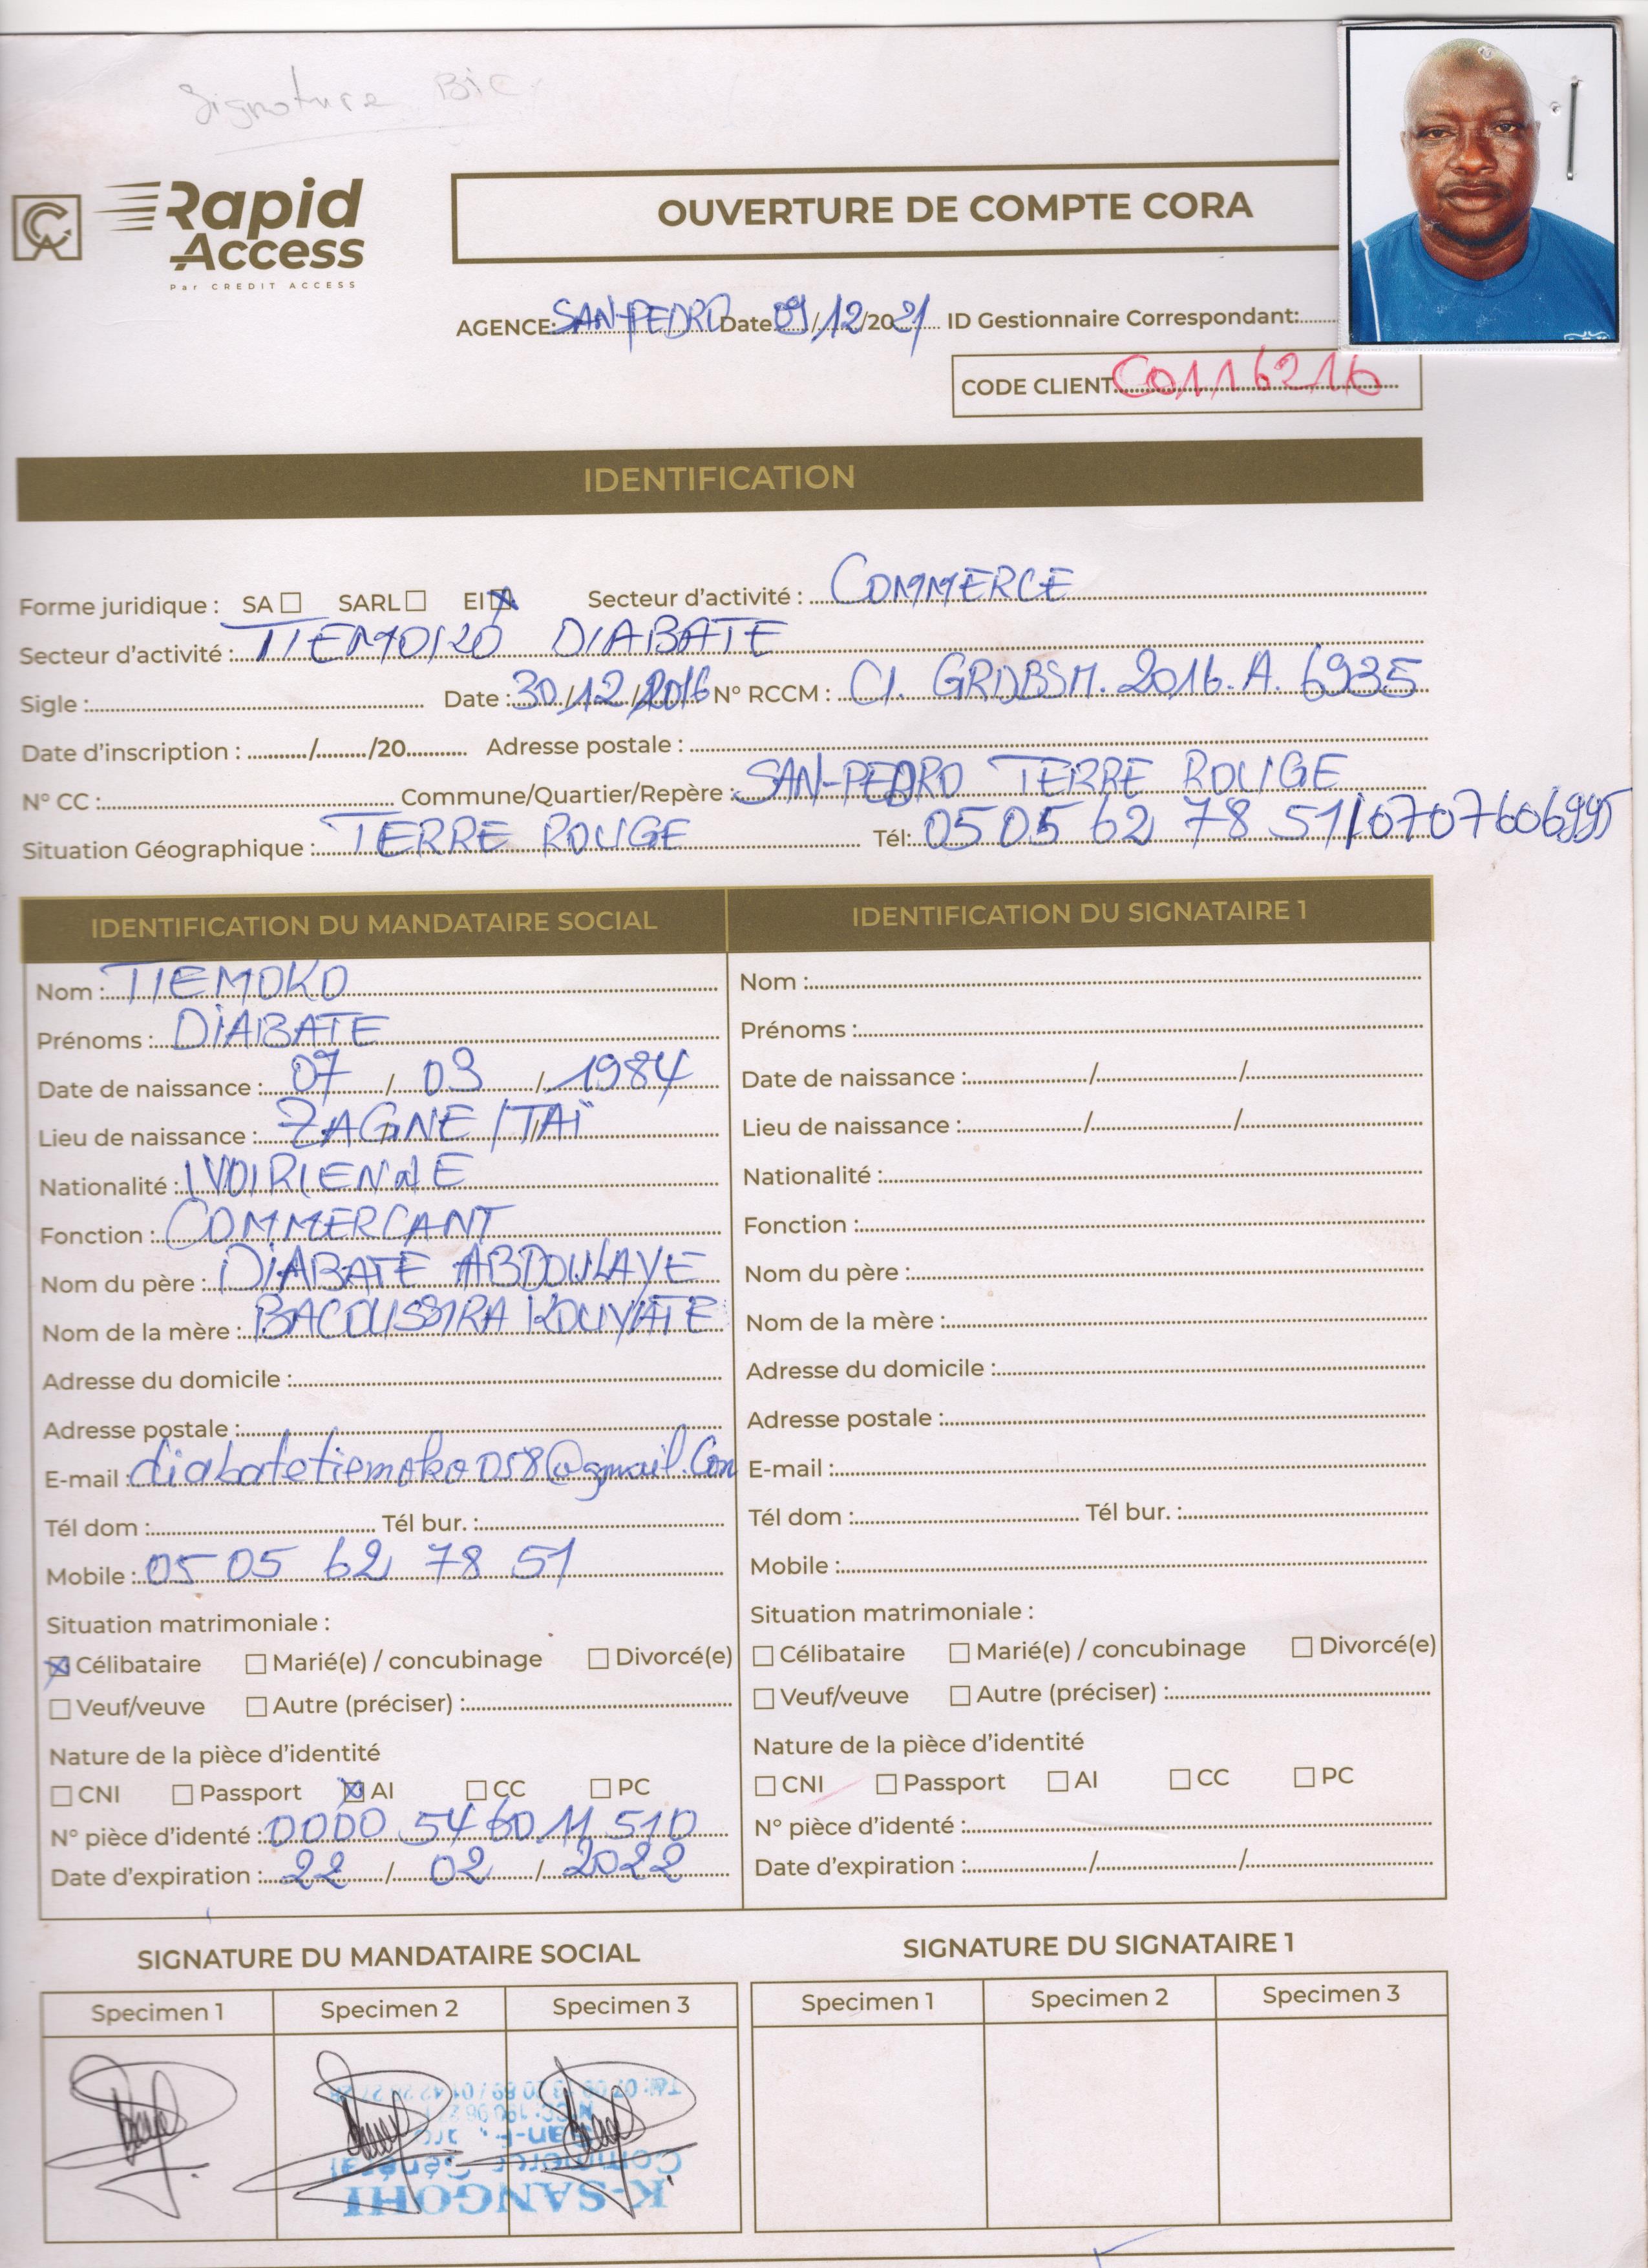 Signature Bic
CA
Rapid
Access
Par CREDIT ACCESS
OUVERTURE DE COMPTE CORA
AGENCE: SAN-PEDRO Date 09/12/2021 ID Gestionnaire Correspondant:
CODE CLIENT C0116216
IDENTIFICATION
Forme juridique : SA ☐ SARL ☐ EI ☒ Secteur d'activité : COMMERCE
Secteur d'activité : TIEMOKO DIABATE
Sigle : Date : 30/12/2016 N° RCCM : CI. GRDBSM. 2016. A. 6935
Date d'inscription : ........../........./20........... Adresse postale :
N° CC : Commune/Quartier/Repère : SAN-PEDRO TERRE ROUGE
Situation Géographique : TERRE ROUGE Tél: 05 05 62 78 51/0707606995
IDENTIFICATION DU MANDATAIRE SOCIAL
Nom : TIEMOKO
Prénoms : DIABATE
Date de naissance : 07 / 03 / 1984
Lieu de naissance : ZAGNE / TAÏ
Nationalité : IVOIRIENNE
Fonction : COMMERCANT
Nom du père : DIABATE ABDOULAYE
Nom de la mère : BACOUSSIRA KOUYATE
Adresse du domicile :
Adresse postale :
E-mail : diabatetiemoko058@gmail.Com
Tél dom : Tél bur. :
Mobile : 05 05 62 78 51
Situation matrimoniale :
☒ Célibataire ☐ Marié(e) / concubinage ☐ Divorcé(e)
☐ Veuf/veuve ☐ Autre (préciser) :
Nature de la pièce d'identité
☐ CNI ☐ Passport ☒ AI ☐ CC ☐ PC
N° pièce d'identé : 0000 54 60 11 510
Date d'expiration : 22 / 02 / 2022
IDENTIFICATION DU SIGNATAIRE 1
Nom :
Prénoms :
Date de naissance : / /
Lieu de naissance : / /
Nationalité :
Fonction :
Nom du père :
Nom de la mère :
Adresse du domicile :
Adresse postale :
E-mail :
Tél dom : Tél bur. :
Mobile :
Situation matrimoniale :
☐ Célibataire ☐ Marié(e) / concubinage ☐ Divorcé(e)
☐ Veuf/veuve ☐ Autre (préciser) :
Nature de la pièce d'identité
☐ CNI ☐ Passport ☐ AI ☐ CC ☐ PC
N° pièce d'identé :
Date d'expiration : / /
SIGNATURE DU MANDATAIRE SOCIAL
Specimen 1 Specimen 2 Specimen 3
K-SANGOHI
Commerce Général
SIGNATURE DU SIGNATAIRE 1
Specimen 1 Specimen 2 Specimen 3